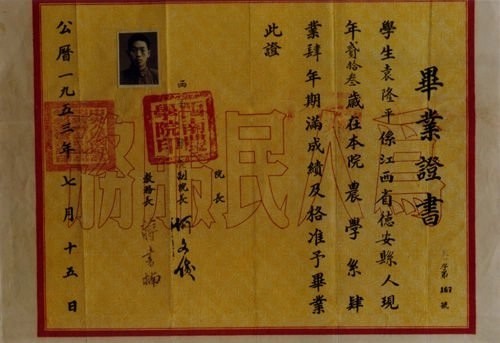 畢業證書
學第 167 號
學生袁隆平係江西省德安縣人現
年貳拾叁歲在本院農學系肆
業肆年期滿成績及格准予畢業
此證
院長
副院長 何文俊
教務長
西南農學院印
公曆一九五三年七月十五日
為人民服務